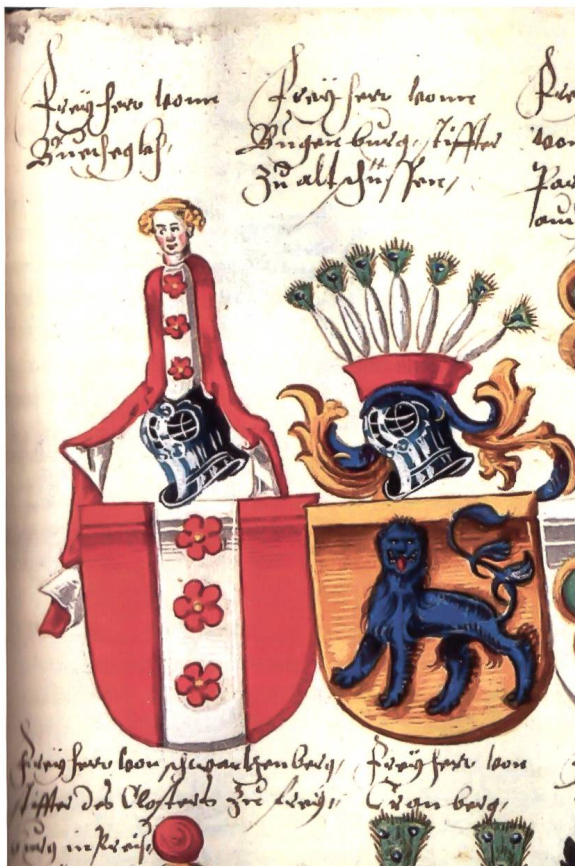 Freyherr vonn
Buecheglh,
Freyherr vonn
Bugenburg, stiffter
zu altshüssen,
Fre
von
Par
Freyherr von schwartzenberg,
stiffter des Closters zu frey,,
burg in Preiß,
Freyherr von
Cronberg,